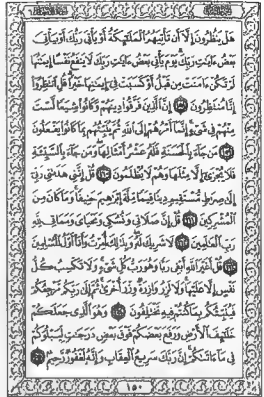 هَلْ يَنظُرُونَ إِلَّا أَن تَأْتِيَهُمُ الْمَلَائِكَةُ أَوْ يَأْتِيَ رَبُّكَ أَوْ يَأْتِيَ
بَعْضُ ءَايَاتِ رَبِّكَ يَوْمَ يَأْتِي بَعْضُ ءَايَاتِ رَبِّكَ لَا يَنفَعُ نَفْسًا إِيمَانُهَا
لَمْ تَكُنْ ءَامَنَتْ مِن قَبْلُ أَوْ كَسَبَتْ فِي إِيمَانِهَا خَيْرًا قُلِ انتَظِرُوا
إِنَّا مُنتَظِرُونَ ١٥٨ إِنَّ الَّذِينَ فَرَّقُوا دِينَهُمْ وَكَانُوا شِيَعًا لَّسْتَ
مِنْهُمْ فِي شَيْءٍ إِنَّمَا أَمْرُهُمْ إِلَى اللَّهِ ثُمَّ يُنَبِّئُهُم بِمَا كَانُوا يَفْعَلُونَ
١٥٩ مَن جَاءَ بِالْحَسَنَةِ فَلَهُ عَشْرُ أَمْثَالِهَا وَمَن جَاءَ بِالسَّيِّئَةِ
فَلَا يُجْزَى إِلَّا مِثْلَهَا وَهُمْ لَا يُظْلَمُونَ ١٦٠ قُلْ إِنَّنِي هَدَانِي رَبِّي
إِلَى صِرَاطٍ مُّسْتَقِيمٍ دِينًا قِيَمًا مِّلَّةَ إِبْرَاهِيمَ حَنِيفًا وَمَا كَانَ مِنَ
الْمُشْرِكِينَ ١٦١ قُلْ إِنَّ صَلَاتِي وَنُسُكِي وَمَحْيَايَ وَمَمَاتِي لِلَّهِ
رَبِّ الْعَالَمِينَ ١٦٢ لَا شَرِيكَ لَهُ وَبِذَلِكَ أُمِرْتُ وَأَنَا أَوَّلُ الْمُسْلِمِينَ
١٦٣ قُلْ أَغَيْرَ اللَّهِ أَبْغِي رَبًّا وَهُوَ رَبُّ كُلِّ شَيْءٍ وَلَا تَكْسِبُ كُلُّ
نَفْسٍ إِلَّا عَلَيْهَا وَلَا تَزِرُ وَازِرَةٌ وِزْرَ أُخْرَى ثُمَّ إِلَى رَبِّكُم مَّرْجِعُكُمْ
فَيُنَبِّئُكُم بِمَا كُنتُمْ فِيهِ تَخْتَلِفُونَ ١٦٤ وَهُوَ الَّذِي جَعَلَكُمْ
خَلَائِفَ الْأَرْضِ وَرَفَعَ بَعْضَكُمْ فَوْقَ بَعْضٍ دَرَجَاتٍ لِّيَبْلُوَكُمْ
فِي مَا ءَاتَاكُمْ إِنَّ رَبَّكَ سَرِيعُ الْعِقَابِ وَإِنَّهُ لَغَفُورٌ رَّحِيمٌ ١٦٥
١٥٠